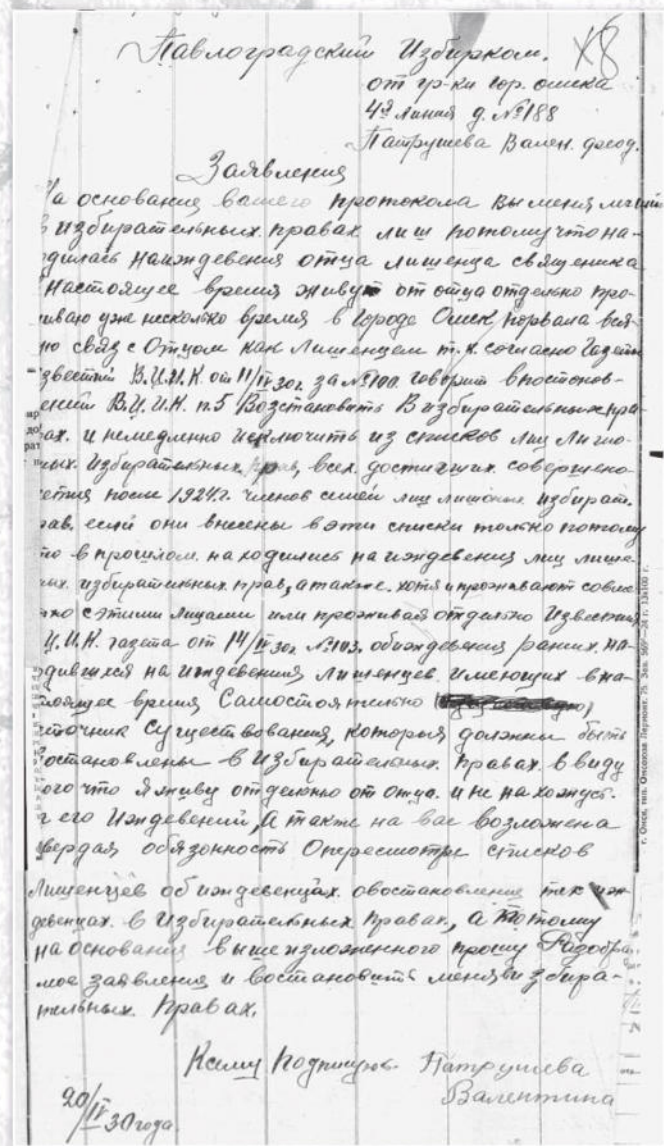 Павлоградский Избирком.
от гр-ки гор. омска
4я линия д. №188
Патрушева Вален. феод.
Заявления
На основания вашего протокола вы меня
избирательных. правах лиш потому что на-
дилась на иждевения отца лишенца священика
Настоящее время живу от отца отдельно про-
иваю уже несколько время в городе Омск порвала вся-
ю связ с Отцом как Лишенцем т.х. согласно Газеты
звестий В.Ц.И.К от 11/IV 30г. за №100. говорит впостонов-
ении В.Ц.И.К. п.5 Возстановить В избирательных пра-
вах. и немедленно исключить из списков лиц лишо-
ных. избирательных прав, всех. достигших. совершено-
летия после 1924г. членов семей лиц лишоных избират.
рав. если они внесены в эти списки только потому
то в прошлом. находились на иждевения лиц лише-
ных. избирательных прав, а также. хотя и проживают совме-
но с этими лицами или проживая отдельно Известия
Ц.И.К. газета от 14/IV 30г. №103. обиждевения раних. на-
дившихся на иждевения лишенцев. имеющих вна-
тоящее время Самостоятельно
сточник существования, которыя должны быть
востановлены в избирательных. правах. ввиду
ого что я живу отдельно от отца. и не нахожус.
его иждевений, А также на вас возложена
вердая обязонность Опересмотре списков
Лишенцев обиждевенцах. овостановление тех иж-
девенцах. в избирательных правах, а потому
на основания вышеизложенного прошу Разобра
мое заявления и востановить меня визбира-
тельных Правах.
Ксему Подписуюс. Патрушева
Валентина
20/IV 30 года
г. Омск, тип. Омсовсоюза